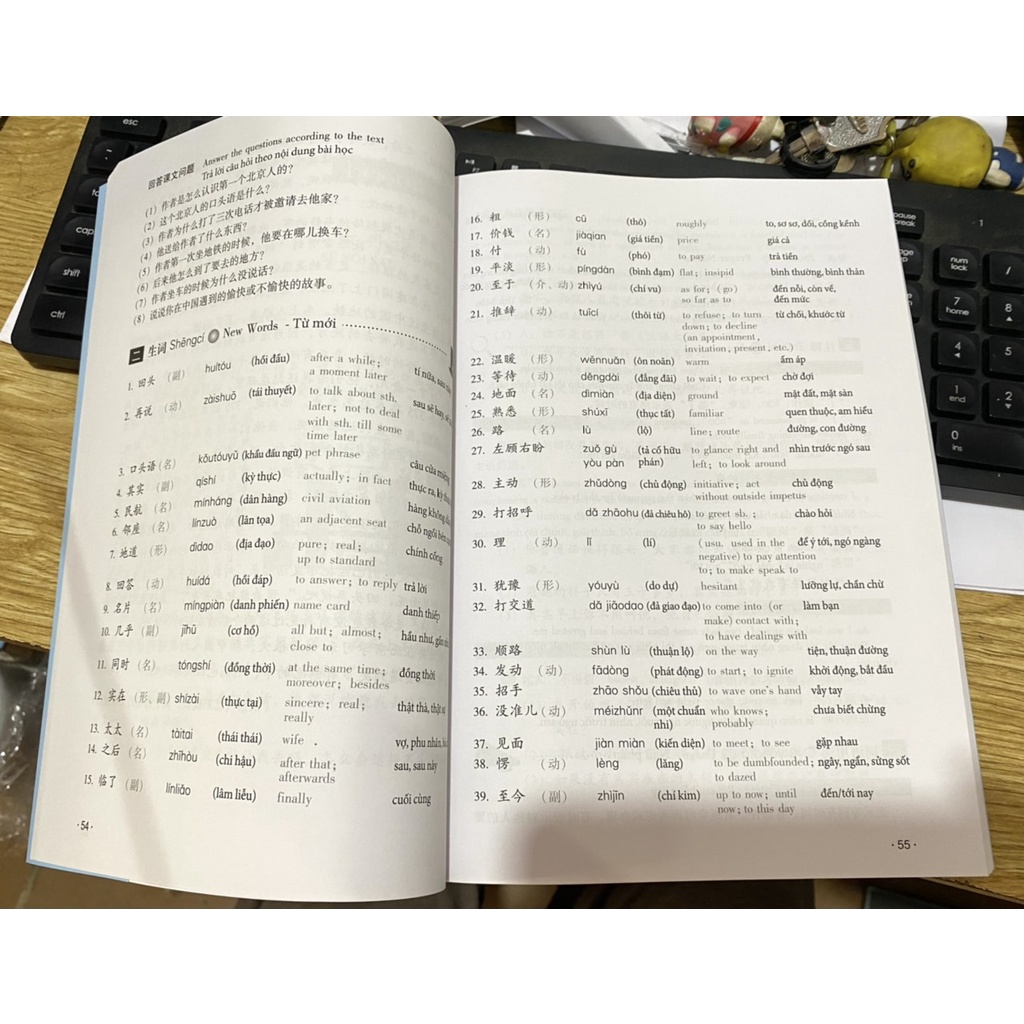 回答课文问题 Answer the questions according to the text
Trả lời câu hỏi theo nội dung bài học
(1) 作者是怎么认识第一个北京人的?
(2) 这个北京人的口头语是什么?
(3) 作者为什么打了三次电话才被邀请去他家?
(4) 他送给作者了什么东西?
(5) 作者第一次坐地铁的时候, 他要在哪儿换车?
(6) 后来他怎么到了要去的地方?
(7) 作者坐车的时候为什么没说话?
(8) 说说你在中国遇到的愉快或不愉快的故事。
二 生词 Shēngcí New Words - Từ mới
1. 回头 (副) huítóu (hồi đầu) after a while; tí nữa, sau
a moment later
2. 再说 (动) zàishuō (tái thuyết) to talk about sth. sau sẽ hay,
later; not to deal
with sth. till some
time later
3. 口头语 (名) kǒutóuyǔ (khẩu đầu ngữ) pet phrase câu cửa
4. 其实 (副) qíshí (kỳ thực) actually; in fact thực ra,
5. 民航 (名) mínháng (dân hàng) civil aviation hàng không
6. 邻座 (名) línzuò (lân tọa) an adjacent seat chỗ ngồi bên
7. 地道 (形) dìdao (địa đạo) pure; real; chính cống
up to standard
8. 回答 (动) huídá (hồi đáp) to answer; to reply trả lời
9. 名片 (名) míngpiàn (danh phiến) name card danh thiếp
10. 几乎 (副) jīhū (cơ hồ) all but; almost; hầu như,
close to
11. 同时 (名) tóngshí (đồng thời) at the same time; đồng thời
moreover; besides
12. 实在 (形、副) shízài (thực tại) sincere; real; thật thà, thật
really
13. 太太 (名) tàitai (thái thái) wife . vợ, phu nhân,
14. 之后 (名) zhīhòu (chi hậu) after that; sau, sau này
afterwards
15. 临了 (副) línliǎo (lâm liễu) finally cuối cùng
·54·
16. 粗 (形) cū (thô) roughly to, sơ sơ, dối, cồng kềnh
17. 价钱 (名) jiàqian (giá tiền) price giá cả
18. 付 (动) fù (phó) to pay trả tiền
19. 平淡 (形) píngdàn (bình đạm) flat; insipid bình thường, bình thản
20. 至于 (介、动) zhìyú (chí vu) as for; (go) đến nỗi, còn về,
so far as to đến mức
21. 推辞 (动) tuīcí (thôi từ) to refuse; to turn từ chối, khước từ
down; to decline
(an appointment,
invitation, present, etc.)
22. 温暖 (形) wēnnuǎn (ôn noãn) warm ấm áp
23. 等待 (动) děngdài (đẳng đãi) to wait; to expect chờ đợi
24. 地面 (名) dìmiàn (địa diện) ground mặt đất, mặt sàn
25. 熟悉 (形) shúxī (thục tất) familiar quen thuộc, am hiểu
26. 路 (名) lù (lộ) line; route đường, con đường
27. 左顾右盼 zuǒ gù (tả cố hữu to glance right and nhìn trước ngó sau
yòu pàn phán) left; to look around
28. 主动 (形) zhǔdòng (chủ động) initiative; act chủ động
without outside impetus
29. 打招呼 dǎ zhāohu (đả chiêu hô) to greet sb.; chào hỏi
to say hello
30. 理 (动) lǐ (lí) (usu. used in the để ý tới, ngó ngàng
negative) to pay attention
to; to make speak to
31. 犹豫 (形) yóuyù (do dự) hesitant lưỡng lự, chần chừ
32. 打交道 dǎ jiāodao (đả giao đạo) to come into (or làm bạn
make) contact with;
to have dealings with
33. 顺路 shùn lù (thuận lộ) on the way tiện, thuận đường
34. 发动 (动) fādòng (phát động) to start; to ignite khởi động, bắt đầu
35. 招手 zhāo shǒu (chiêu thủ) to wave one's hand vẫy tay
36. 没准儿 (动) méizhǔnr (một chuẩn who knows; chưa biết chừng
nhi) probably
37. 见面 jiàn miàn (kiến diện) to meet; to see gặp nhau
38. 愣 (动) lèng (lăng) to be dumbfounded; ngây, ngẩn, sững sốt
to dazed
39. 至今 (副) zhìjīn (chí kim) up to now; until đến/tới nay
now; to this day
·55·
esc
caps
shift
ctrl
pause
break
num
lock
/
7
home
8
4
5
1
end
2
0
ins